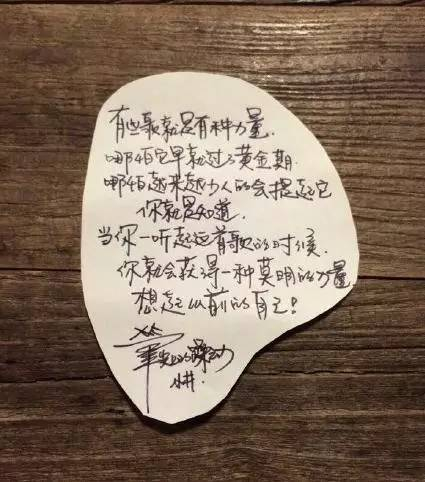 有些歌就是有种力量.
哪怕它早就过了黄金期.
哪怕越来越少人的会提起它
你就是知道.
当你一听起这首歌的时候.
你就会获得一种莫明的力量
想起以前的自己!
笔尖的躁动